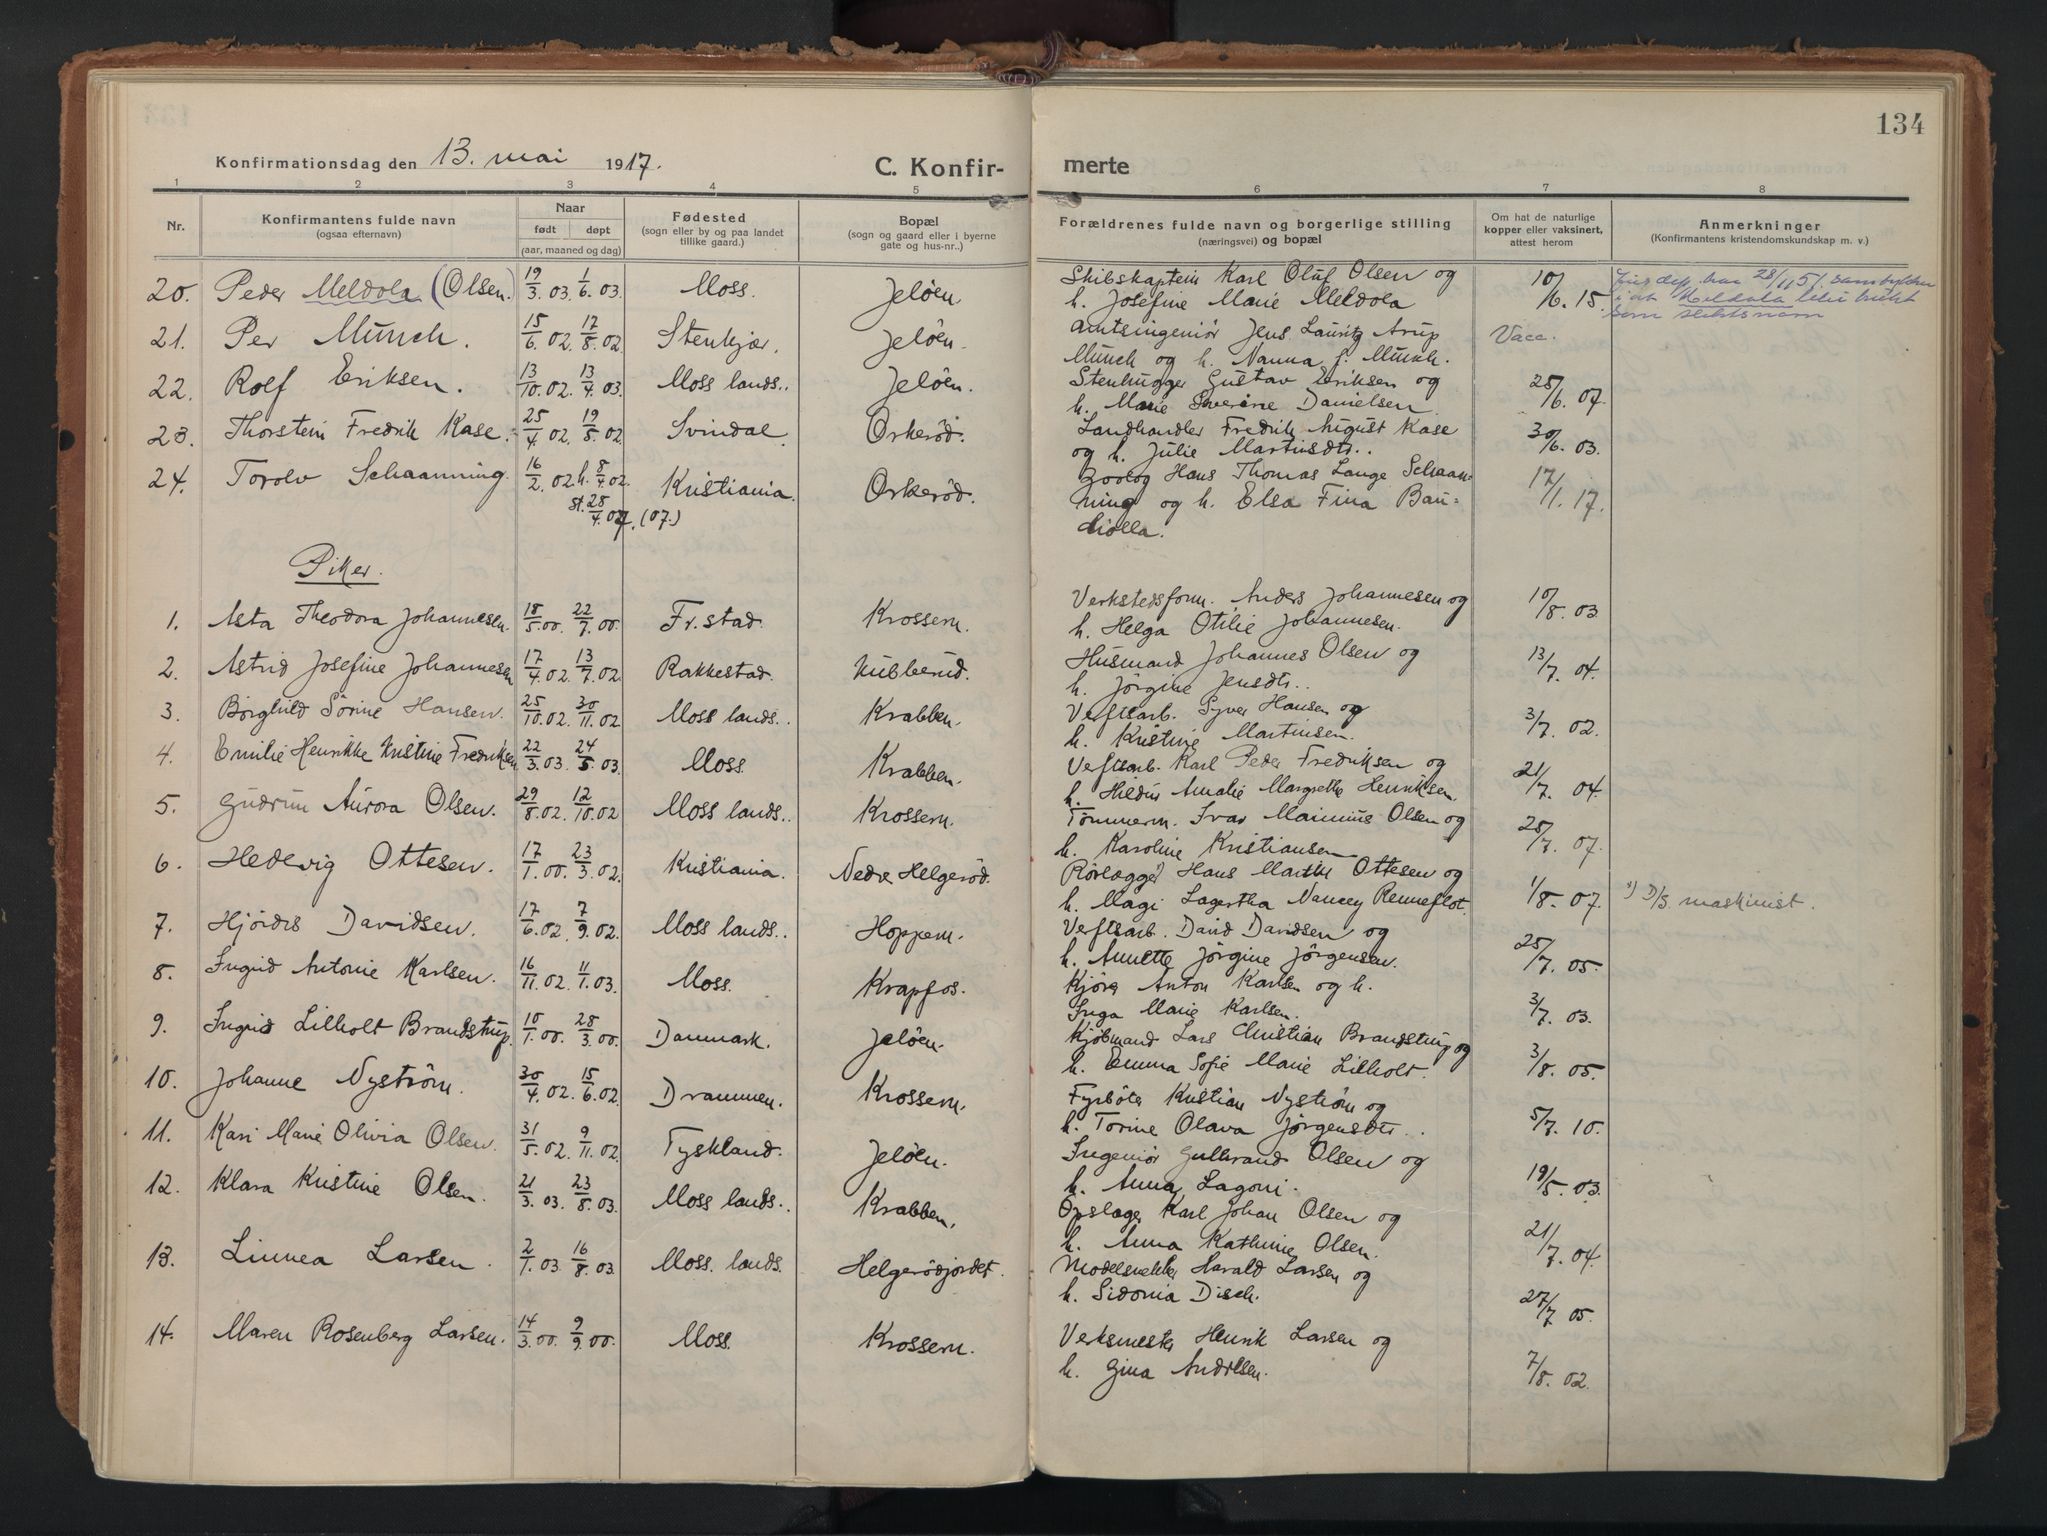 134
Konfirmationsdag den 13. mai 1917. C. Konfir- merte
1 2 3 4 5 6 7 8
Nr. Konfirmantens fulde navn (ogsaa efternavn) Naar født døpt (aar, maaned og dag) Fødested (sogn eller by og paa landet tillike gaard.) Bopæl (sogn og gaard eller i byerne gate og hus-nr..) Forældrenes fulde navn og borgerlige stilling (næringsvei) og bopæl Om hat de naturlige kopper eller vaksinert, attest herom Anmerkninger (Konfirmantens kristendomskundskap m. v.)
20. Peder Meldola (Olsen.) 19/3. 03. 1/6. 03. Moss. Jeløen. Skibskaptein Karl Oluf Olsen og 10/6. 15.
h. Josefine Marie Meldola
i at Meldola blir brukt
som slektsnavn
21. Per Münch. 15/6. 02. 17/8. 02. Stenkjær. Jeløen. Amtsingeniør Jens Lauritz Arup Vacc.
Münch og h. Nanna f. Münch.
22. Rolf Eriksen. 13/10. 02. 13/4. 03. Moss lands.. Jeløen. Stenhugger Gustav Eriksen og 25/6. 07.
h. Marie Severine Danielsen
23. Thorstein Fredrik Kase. 25/4. 02. 19/5. 02. Svindal. Orkerød. Landhandler Fredrik August Kase 30/6. 03.
og h. Julie Martinsdtr..
24. Torolv Schaanning. 16/2. 02. h. 8/4. 02. Kristiania. Orkerød. Zoolog Hans Thomas Lange Schaan- 17/1. 17.
st. 28/4. 07. (07.) ning og h. Elsa Fina Bau=
diolla.
Piker.
1. Asta Theodora Johannesen. 18/5. 00. 22/7. 00. Fr.stad. Krossern. Verkstedsform. Anders Johannesen og 10/8. 03
h. Helga Otilie Johannesen.
2. Astrid Josefine Johannesen 17/4. 02. 13/7. 02. Rakkestad. Kubberud. Husmand Johannes Olsen og 13/7. 04.
h. Jørgine Jensdtr..
3. Borghild Sørine Hansen. 25/10. 02. 30/11. 02 Moss lands.. Krabben. Verftsarb. Syver Hansen og 3/7. 02.
h. Kristine Martinsen.
4. Emilie Henrikke Kristine Fredriksen 22/3. 03. 24/5. 03. Moss. Krabben. Verftsarb. Karl Peder Fredriksen og 21/7. 04.
h. Hildur Amalie Margrethe Henriksen.
5. Gudrun Aurora Olsen. 29/8. 02. 12/10. 02 Moss lands.. Krossern. Tømmerm. Ivar Marinius Olsen og 25/7. 07.
h. Karoline Kristiansen
6. Hedevig Ottesen. 17/1. 00. 23/3. 02. Kristiania. Nedre Helgerød. Rørlægger Hans Martin Ottesen og 1/8. 07. 1) D/S. maskinist.
h. Magi Lagertha Nancy Renneflot.
7. Hjørdis Davidsen. 17/6. 02. 7/9. 02. Moss lands.. Hoppern. Verftsarb. David Davidsen og 25/7. 05.
h. Anette Jørgine Jørgensen.
8. Ingrid Antonie Karlsen. 16/11. 02. 11/1. 03. Moss. Krapfos. Kjører Anton Karlsen og h. 3/7. 03.
Inga Marie Karlsen.
9. Ingrid Lilholt Brandstrup. 10/1. 00. 28/3. 00. Danmark. Jeløen. Kjøbmand Lars Christian Brandstrup og 3/8. 05.
h. Emma Sofie Marie Lilholt.
10. Johanne Nystrøm. 30/4. 02. 15/6. 02. Drammen. Krossern. Fyrbøter Kristian Nystrøm og 5/7. 10.
h. Torine Olava Jørgensdtr..
11. Kari Marie Olivia Olsen. 31/5. 02. 9/11. 02. Tyskland. Jeløen. Ingeniør Gulbrand Olsen og 19/5. 03.
h. Anna Lagoni.
12. Klara Kristine Olsen. 21/3. 03. 23/8. 03. Moss lands.. Krabben. Opslager Karl Johan Olsen og 21/7. 04.
h. Anna Kathrine Olsen.
13. Linnea Larsen. 2/1. 03. 16/8. 03. Moss. lands. Helgerødjordet. Modelsnekker Harald Larsen og 27/7. 05.
h. Sidonia Disch.
14. Maren Rosenberg Larsen. 14/3. 00. 9/9. 00. Moss. Krossern. Verksmester Henrik Larsen og 7/8. 02.
h. Gina Andresen.